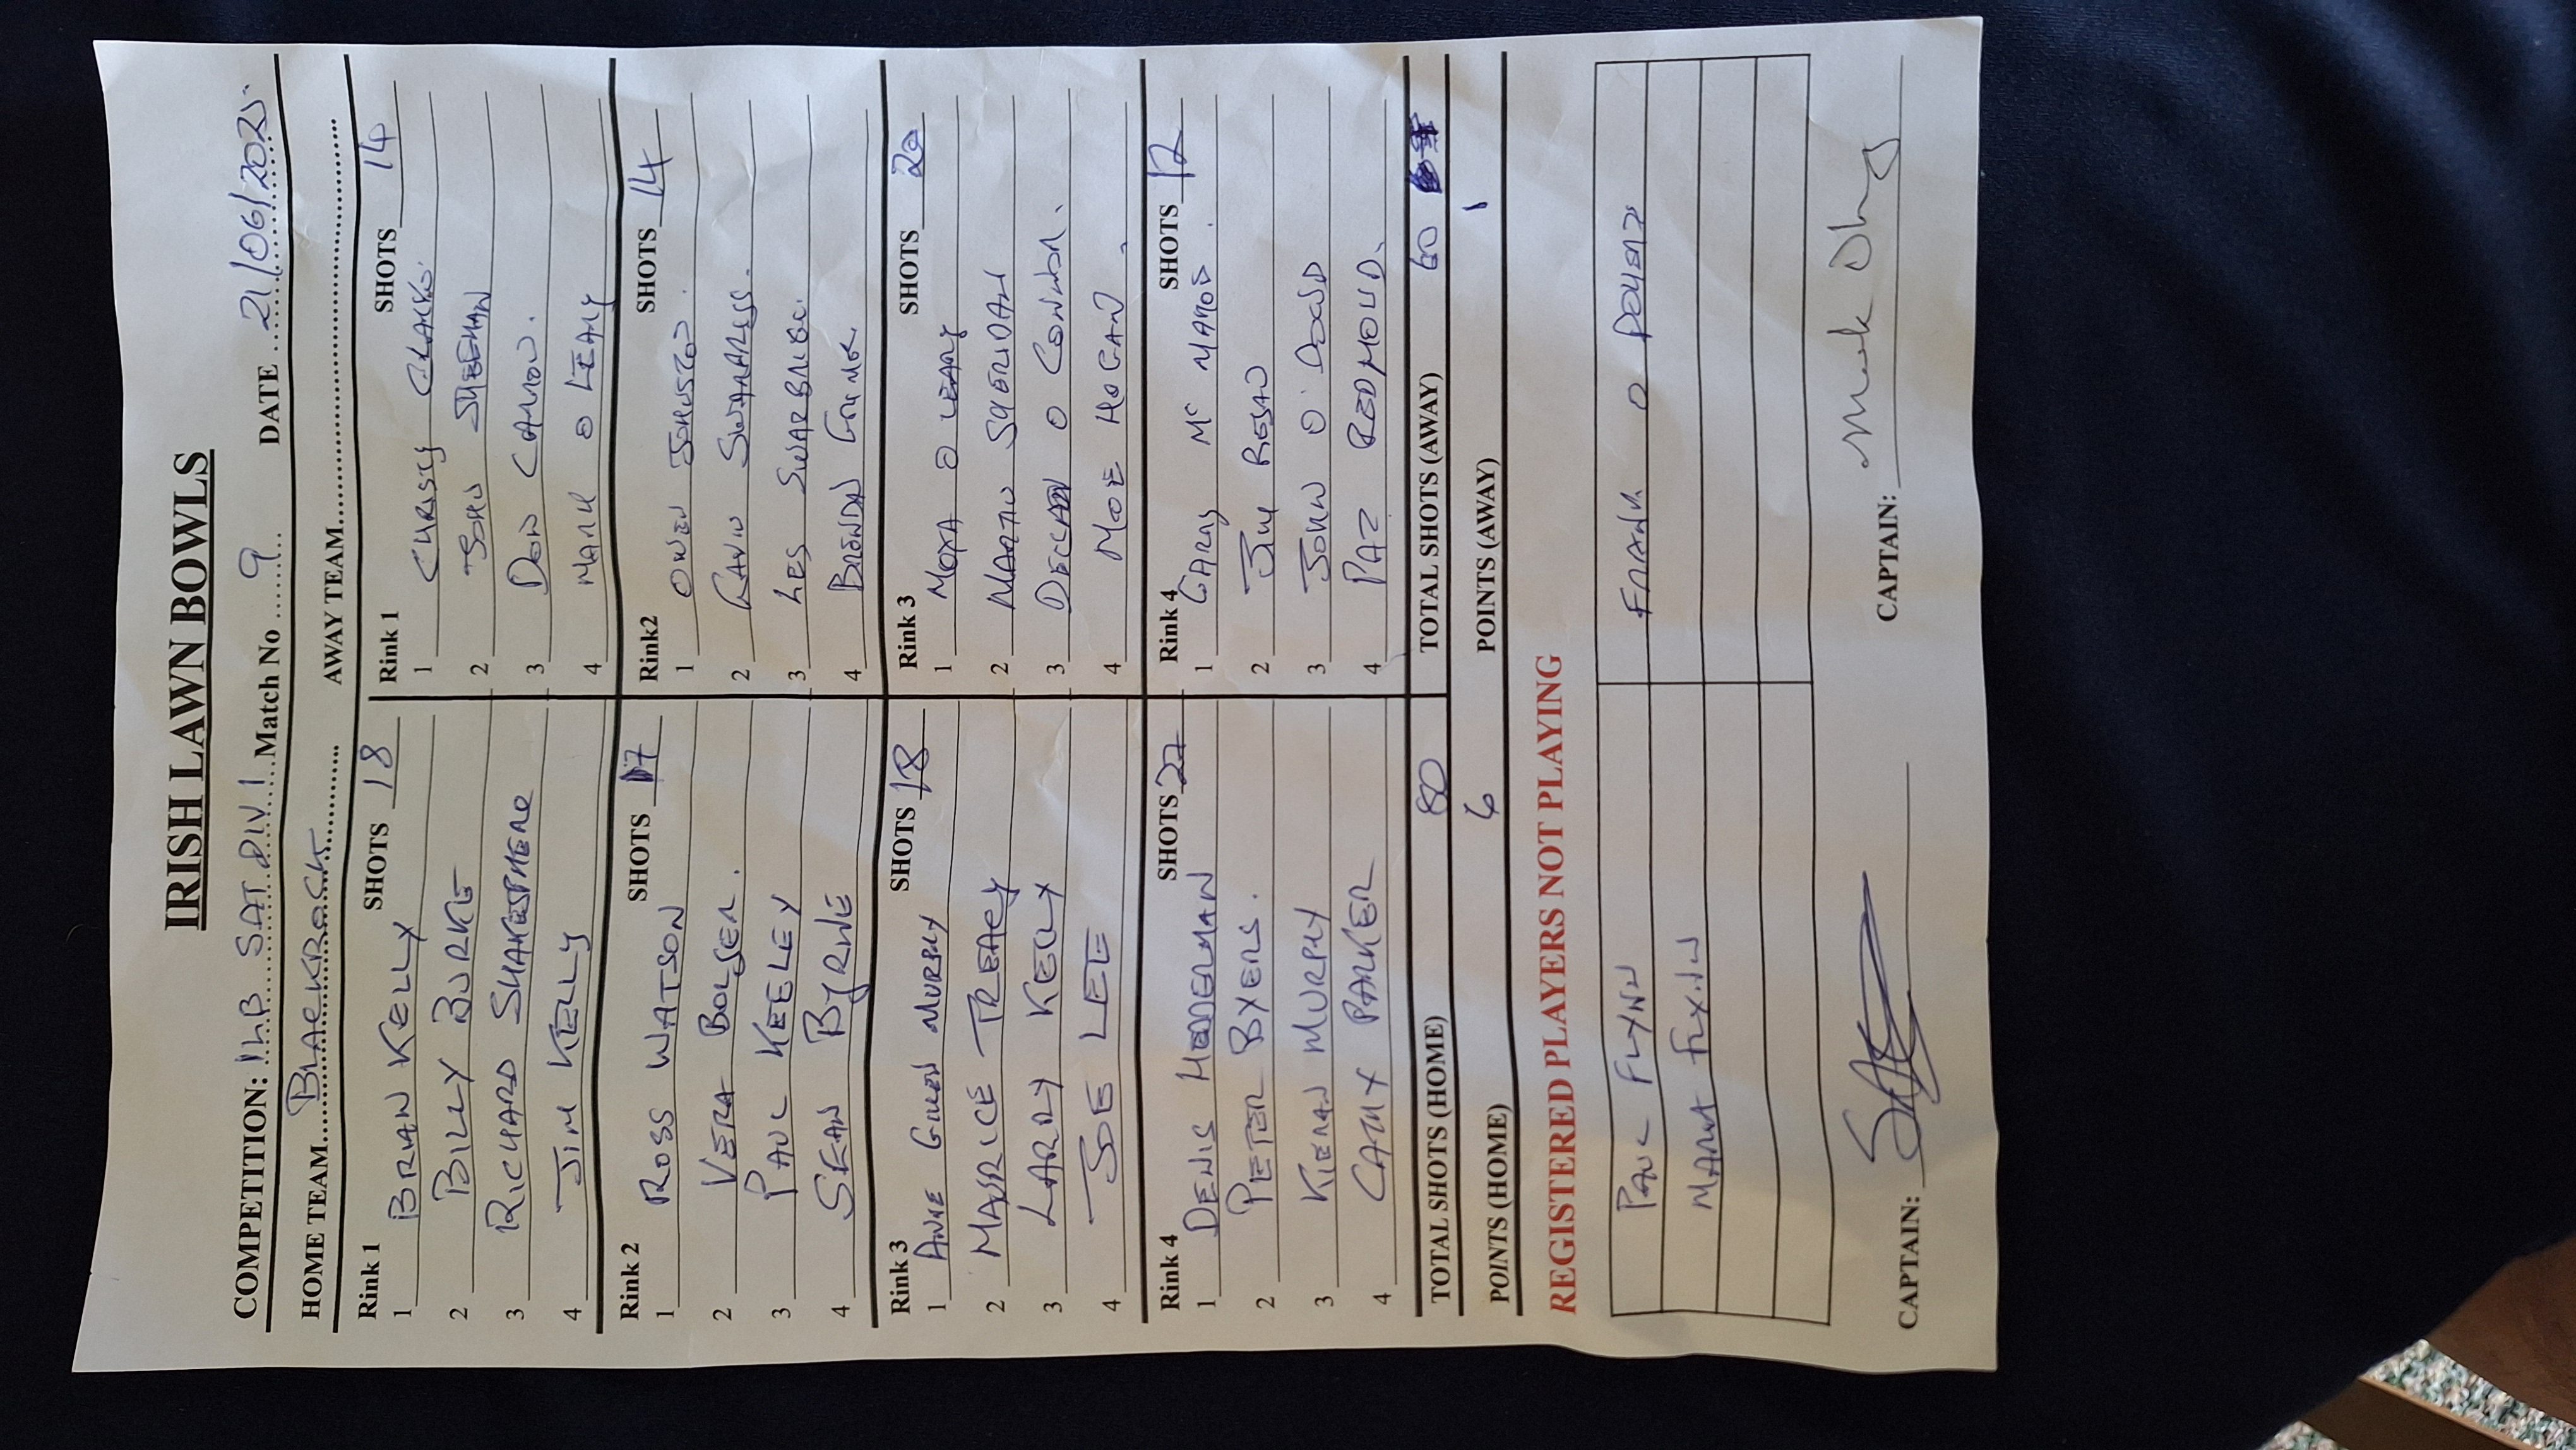 IRISH LAWN BOWLS
COMPETITION: ILB SAT DIV 1 Match No 9 DATE 21/06/2025
HOME TEAM BLACKROCK AWAY TEAM
Rink 1 SHOTS 18
1 BRIAN KELLY
2 BILLY BURKE
3 RICHARD SHAKESPHERE
4 JIM KELLY
Rink 1 SHOTS 14
1 CHRISTY CLARKE
2 JOHN SHEEHAN
3 DON CANNON
4 MARK O LEARY
Rink 2 SHOTS 17
1 ROSS WATSON
2 VERA BOLGER.
3 PAUL KEELEY
4 SEAN BYRNE
Rink2 SHOTS 14
1 OWEN JOHNSTON.
2 GAVIN SWARBRIGG.
3 LES SWARBRIGG.
4 BRENDAN
Rink 3 SHOTS 18
1 ANNE MURPHY
2 MAURICE TREACY
3 LARRY KELLY
4 JOE LEE
Rink 3 SHOTS 20
1 MOYA O LEARY
2 MARTIN SHERIDAN
3 DECLAN O CONNOR.
4 MOE HOGAN.
Rink 4 SHOTS 27
1 DENIS
2 PETER BYERS.
3 KIERAN MURPHY
4 CATHY PARKER
Rink 4 SHOTS 12
1 GARRY Mc MANOS.
2 JIM REGAN
3 JOHN O' DOWD
4 PAT REDMOUD.
TOTAL SHOTS (HOME) 80 TOTAL SHOTS (AWAY) 60
POINTS (HOME) 6 POINTS (AWAY) 1
REGISTERED PLAYERS NOT PLAYING
PAUL FLYNN FRANK O
MARIA FLYNN
CAPTAIN: CAPTAIN: Mark